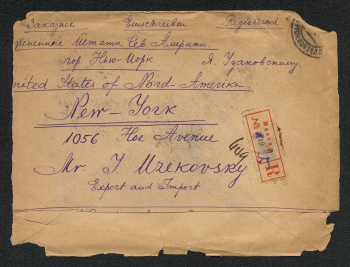 Заказное Einschreiben Registered
Соединенные Штаты Сев Америки.
гор Нью-Йорк Я. Узаковскому.
United States of Nord-Amerika
New-York
1056 Hoe Avenue
Mr J. Uzekovsky
Export and Import
R